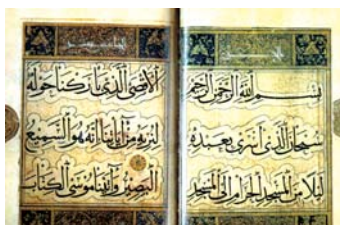 بسم الله الرحمن الرحيم
سبحان الذى أسرى بعبده
ليلا من المسجد الحرام إلى المسجد
الأقصى الذى باركنا حوله
لنريه من آياتنا إنه هو السميع
البصير وآتينا موسى الكتاب